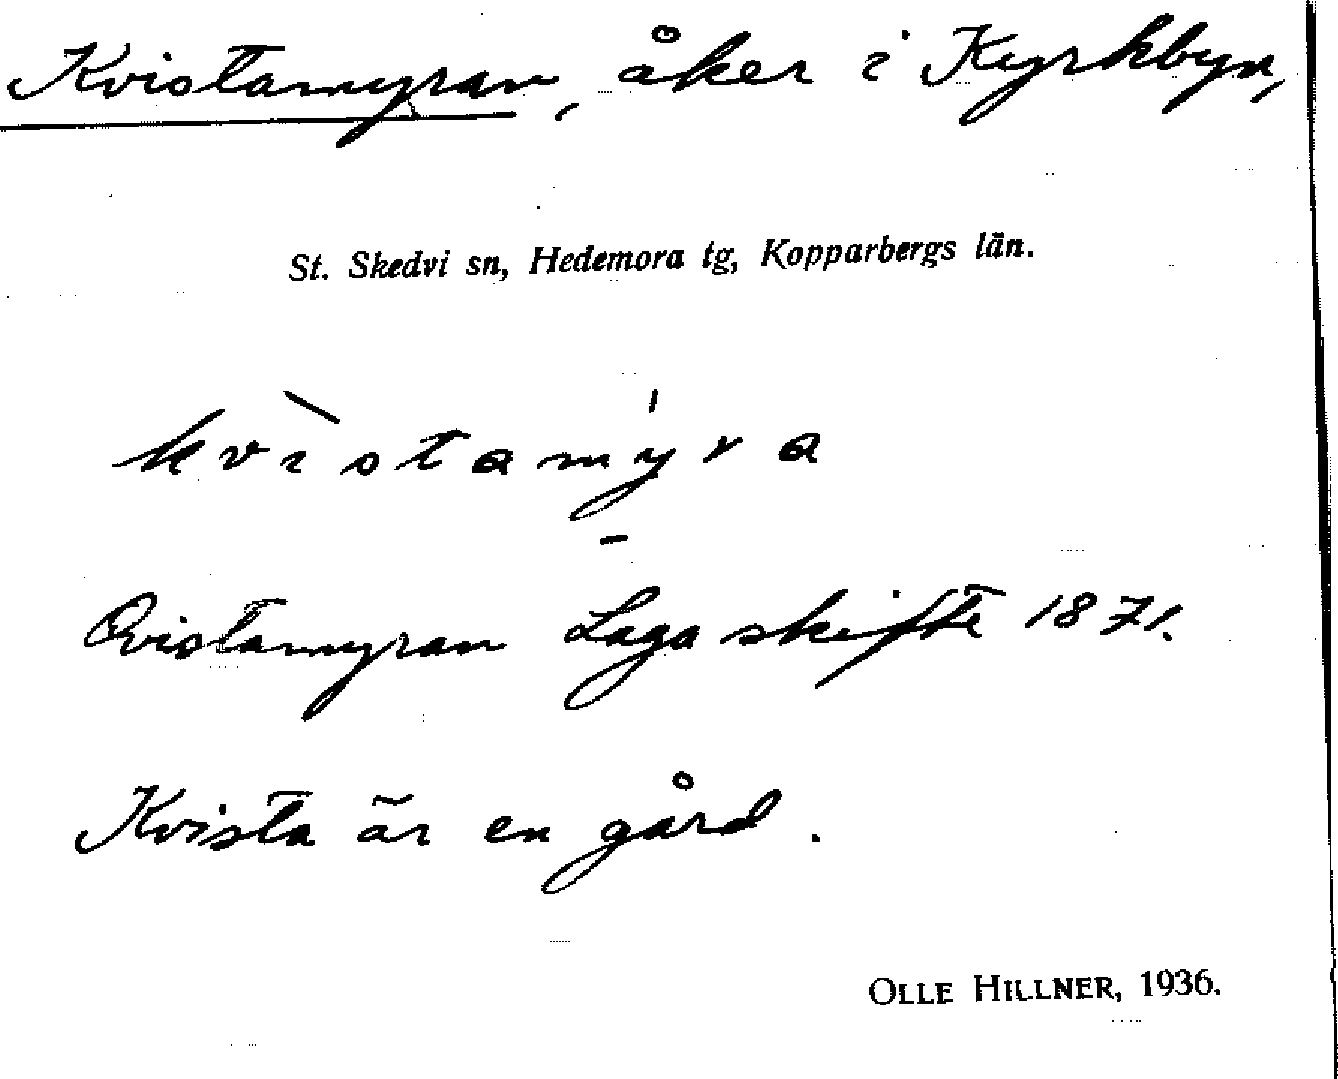 Kvistamyran, åker i Kyrkbyn,
St. Skedvi sn, Hedemora tg, Kopparbergs län.
kvìstamýra
Qvistamyran Laga skifte 1871.
Kvista är en gård.
OLLE HILLNER, 1936.